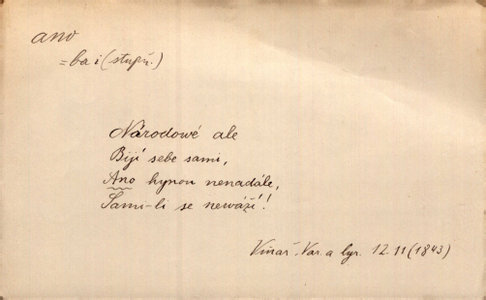 ano
= ba i (stupň.)
Národowé ale
Bijí sebe sami,
Ano hynou nenadále,
Sami-li se newáží!
Vinař. Var. a lyr. 12. 11 (1843)